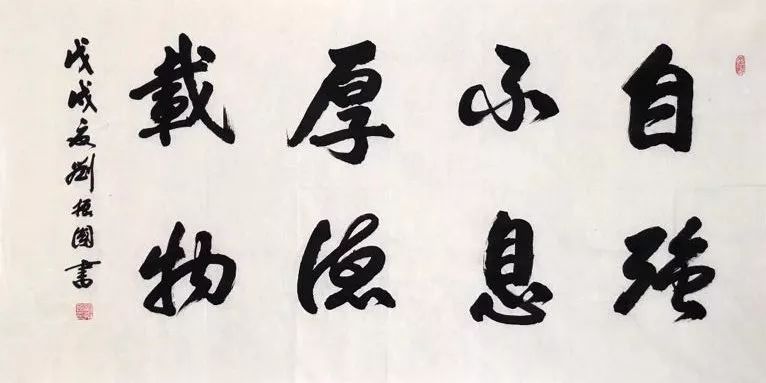 自強
不息
厚德
載物
戊戌夏劉振國書